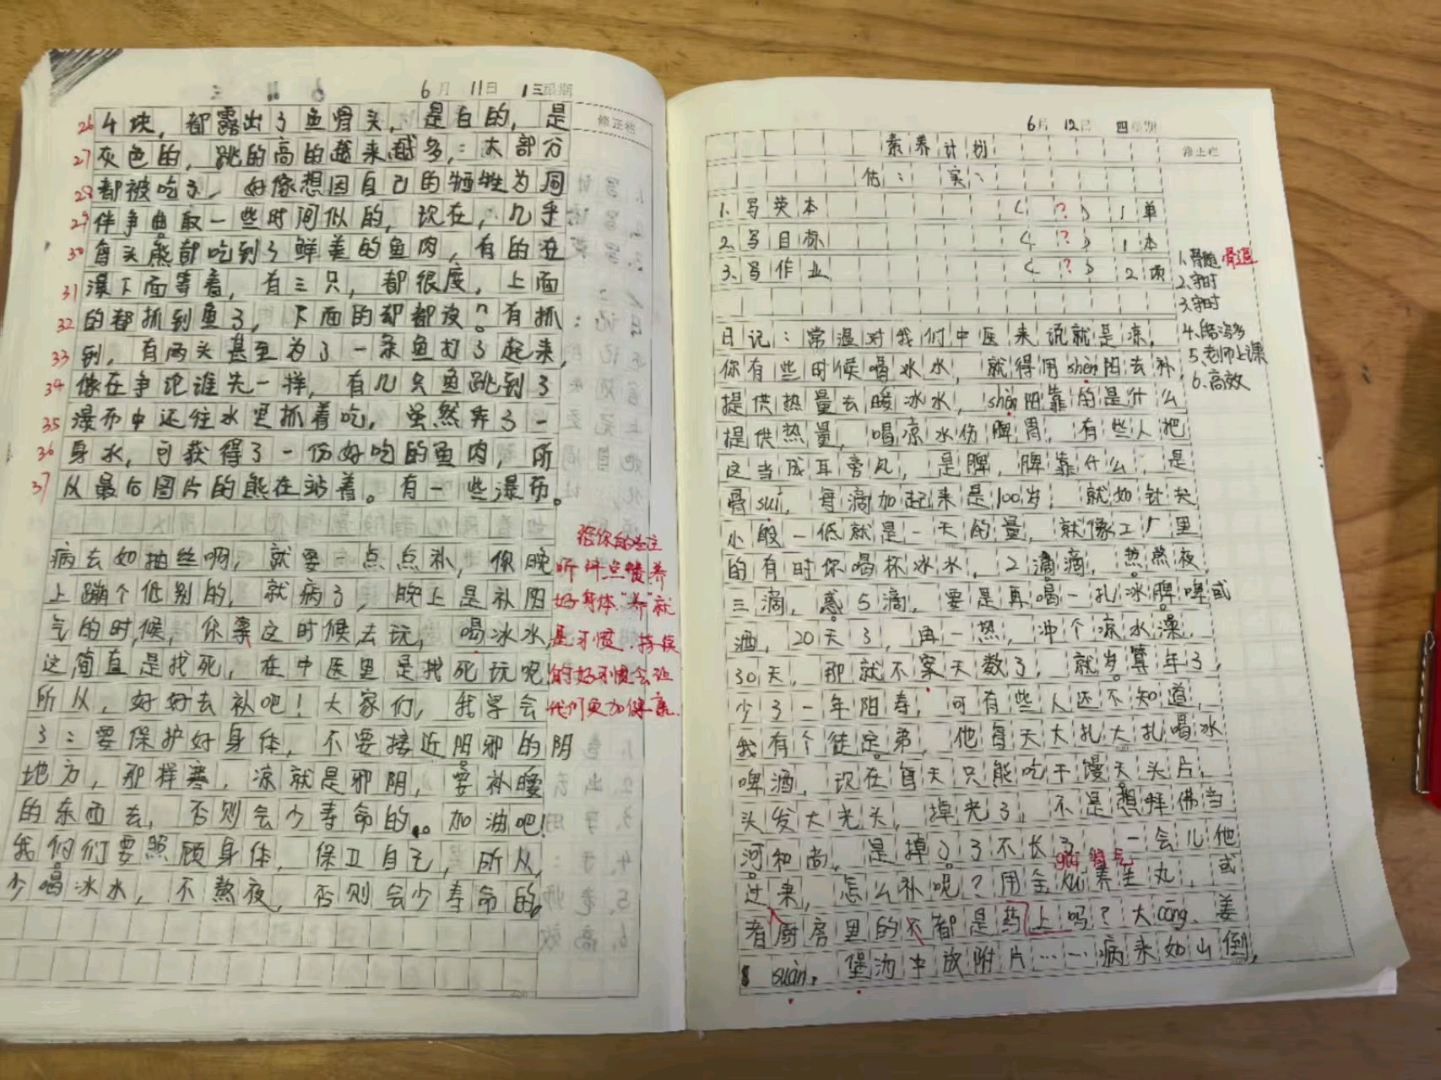 6月 11日 三星期
修正栏
26 4块，都露出了鱼骨头，是白的，是
27 灰色的，跳的高的越来越多，：大部分
28 都被吃了，好像想因自己的牺牲为同
29 伴争取一些时间似的，现在，几乎
30 每头熊都吃到了鲜美的鱼肉，有的在
31 瀑下面等着，有三只，都很度，上面
32 的都抓到鱼了，下面的却都没？有抓
33 到，有两头甚至为了一条鱼打了起来，
34 像在争论谁先一样，有几只鱼跳到了
35 瀑布中还往水里抓着吃，虽然弄了一
36 身水，可获得了一份好吃的鱼肉，所
37 从最后图片的熊在站着。有一些瀑布。
病去如抽丝啊，就要一点点补，你晚
上蹦个低别的，就病了，晚上是补阳
气的时候，你要这时候去玩，喝冰水，
这简直是找死，在中医里是找死玩呢
所从，好好去补吧！大家们，我学会
了：要保护好身体，不要接近阴邪的阴
地方，那样寒，凉就是邪阴，要补暖
的东西去，否则会少寿命的。加油吧！
我们们要照顾身体，保卫自己，所从，
少喝冰水，不熬夜，否则会少寿命的。
给你的关注
听讲点赞养
好身体"养"就
是习惯，持续
的好习惯会让
我们更加健康.
6月 12日 四星期
修正栏
素养计划
估： 实：
1.写英本 ( ? ) 1单
2.写目标 ( ? ) 1本
3.写作业 ( ? ) 2项
1.骨髓 骨遇
2.守时
3.守时
4.陪写多
5.老师上课
6.高效
日记：常温对我们中医来说就是凉，
你有些时候喝冰水，就得用shèn阳去补，
提供热量去暖冰水，shèn阳靠的是什么
提供热量，喝凉水伤脾胃，有些人把
这当成耳旁风，是脾，脾靠什么，是
骨suǐ，每滴加起来是100岁，就如针尖
小般一低就是一天的量，就像工厂里
的有时你喝杯冰水，2滴滴，熬熬夜
三滴，感5滴，要是再喝一扎冰脾啤或
酒，20天了，再一热，冲个凉水澡，
30天，那就不案天数了，就岁算年了，
少了一年阳寿，可有些人还不知道，
我有个徒定弟，他每天大扎大扎喝冰
啤酒，现在每天只能吃干馒天头片，
头发大光头，掉光了，不是想鲜佛当
河和尚，是掉了了不长了，一会儿他
过来，怎么补呢？用金匮养生丸，或
者厨房里的不都是药上吗？大cōng、姜
suàn，煲汤中放附片……病来如山倒，